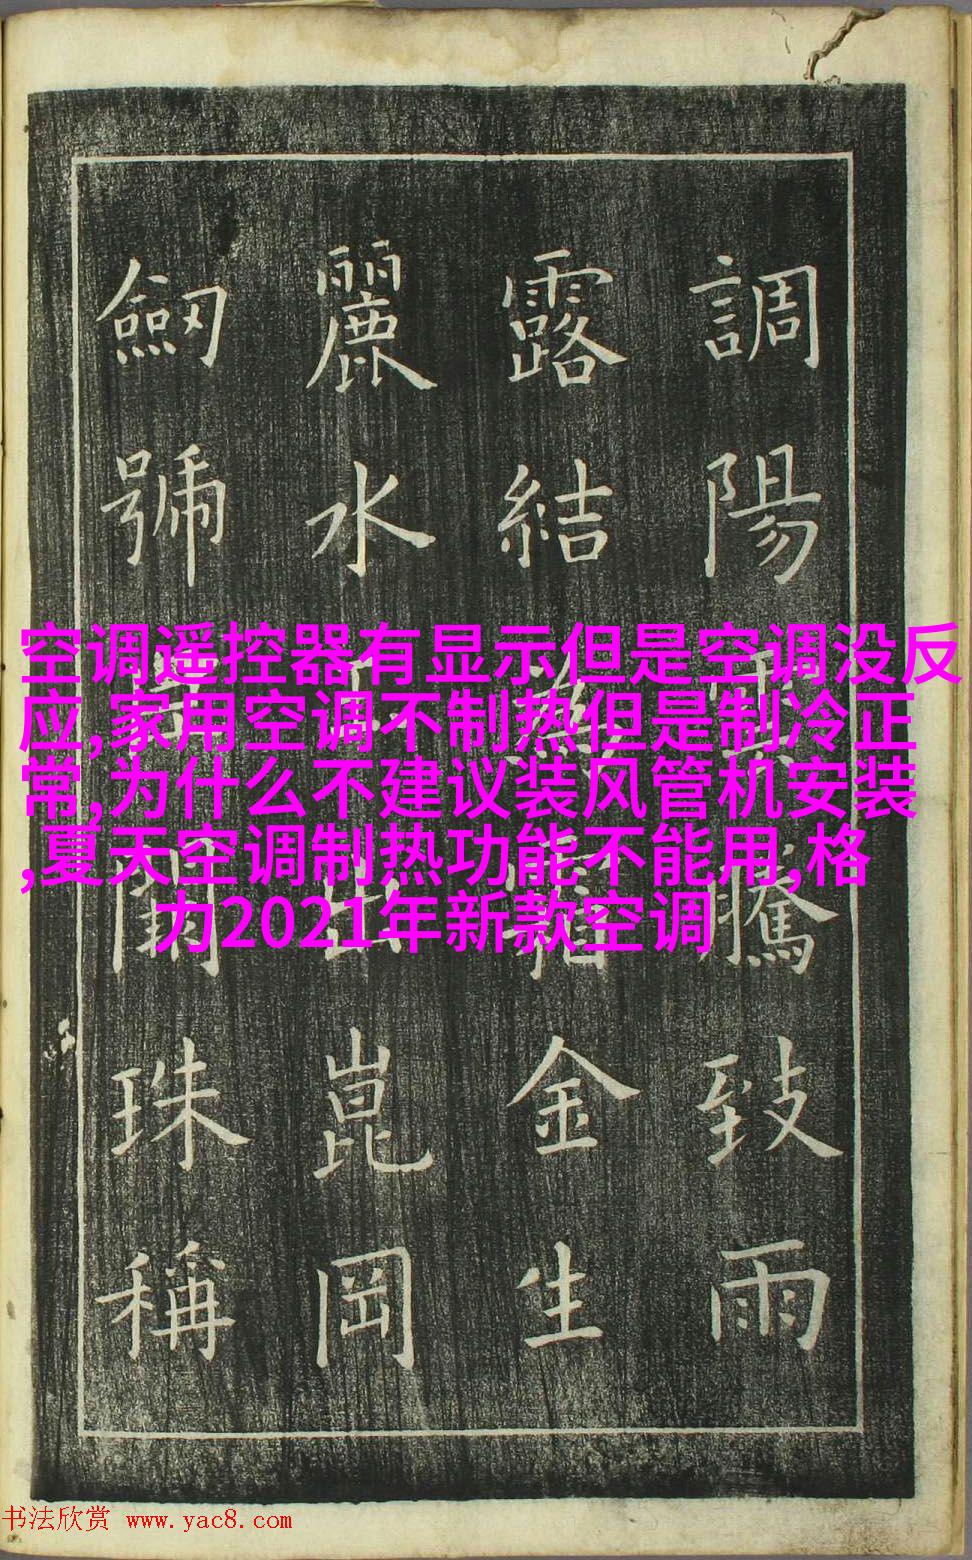 調陽雲騰致雨
露結為霜金生
麗水玉出崑岡
劒號巨闕珠稱
空调遥控器有显示但是空调没反
应,家用空调不制热但是制冷正
常,为什么不建议装风管机安装
,夏天空调制热功能不能用,格
力2021年新款空调
书法欣赏 www.yac8.com